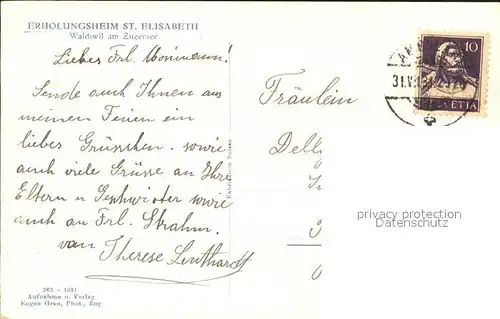 ERHOLUNGSHEIM ST. ELISABETH
Walchwil am Zugersee
Liebes Frl.
Sende auch Ihnen aus
meinen Ferien ein
liebes Grüsschen. sowie
auch viele Grüsse an Ihre
Eltern u Geschwister sowie
auch an Frl. Strahm.
von Therese Leuthardt
263 - 1931
Aufnahme u. Verlag
Eugen Grau, Phot., Zug
Fräulein
10
HELVETIA
privacy protection
Datenschutz